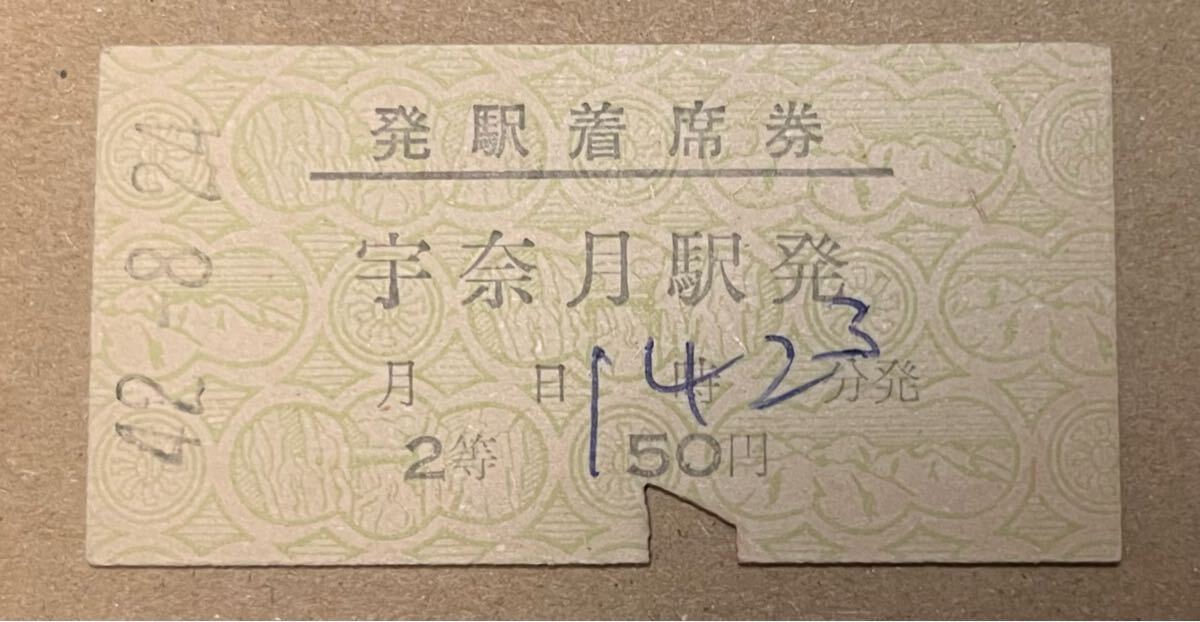 発駅着席券
宇奈月駅発
月 日 14時23分発
2等 50円
42-8 24